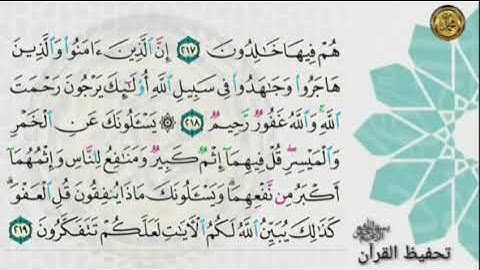 هُمْ فِيهَا خَٰلِدُونَ ٢١٧ إِنَّ ٱلَّذِينَ ءَامَنُوا۟ وَٱلَّذِينَ
هَاجَرُوا۟ وَجَٰهَدُوا۟ فِى سَبِيلِ ٱللَّهِ أُو۟لَٰٓئِكَ يَرْجُونَ رَحْمَتَ
ٱللَّهِ ۚ وَٱللَّهُ غَفُورٌ رَّحِيمٌ ٢١٨ ۞ يَسْـَٔلُونَكَ عَنِ ٱلْخَمْرِ
وَٱلْمَيْسِرِ ۖ قُلْ فِيهِمَآ إِثْمٌ كَبِيرٌ وَمَنَٰفِعُ لِلنَّاسِ وَإِثْمُهُمَآ
أَكْبَرُ مِن نَّفْعِهِمَا ۗ وَيَسْـَٔلُونَكَ مَاذَا يُنفِقُونَ قُلِ ٱلْعَفْوَ ۗ
كَذَٰلِكَ يُبَيِّنُ ٱللَّهُ لَكُمُ ٱلْءَايَٰتِ لَعَلَّكُمْ تَتَفَكَّرُونَ ٢١٩
تحفيظ القرآن